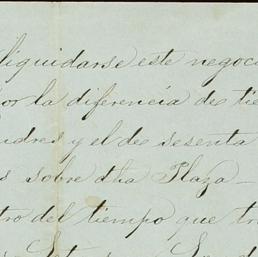 liquidarse este negoc
or la diferencia de tie
udres y el de sesenta
s sobre dha Plaza —
tro del tiempo que tr